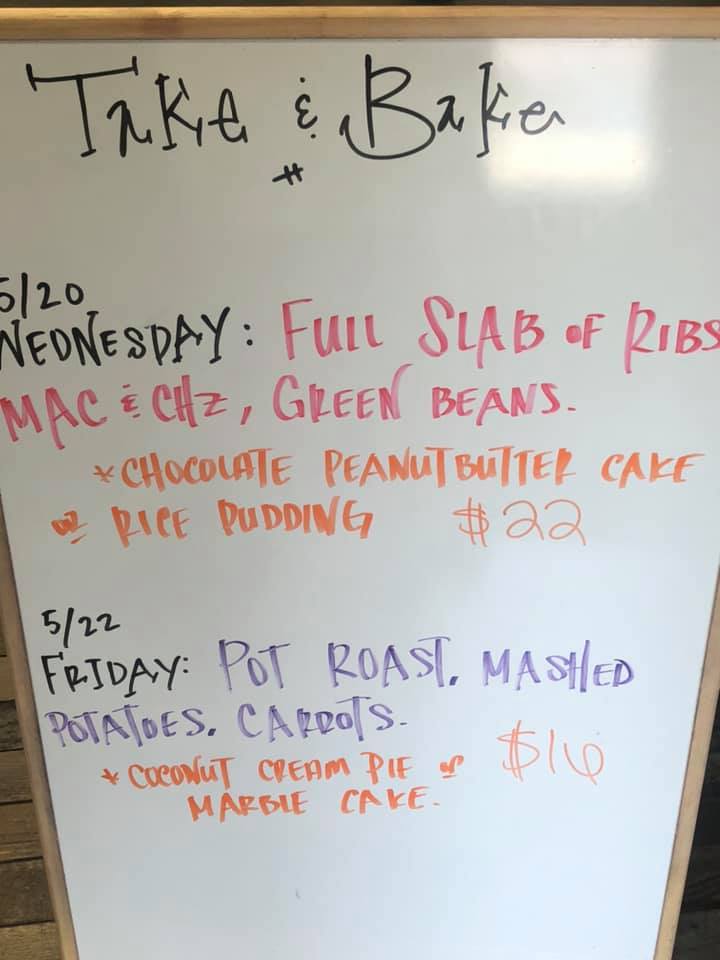 Take & Bake
5/20
WEDNESDAY: FULL SLAB OF RIBS
MAC & CHZ, GREEN BEANS.
*CHOCOLATE PEANUTBUTTER CAKE
or RICE PUDDING $22
5/22
FRIDAY: POT ROAST. MASHED
POTATOES. CARROTS.
* COCONUT CREAM PIE or $16
MARBLE CAKE.